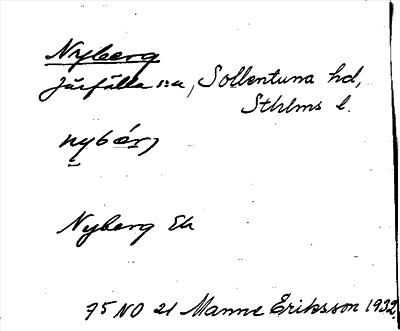 Nyberg
Järfälla sn, Sollentuna hd,
Sthlms l.
nybär)
Nyberg Ek
75 NO 21 Manne Eriksson 1932